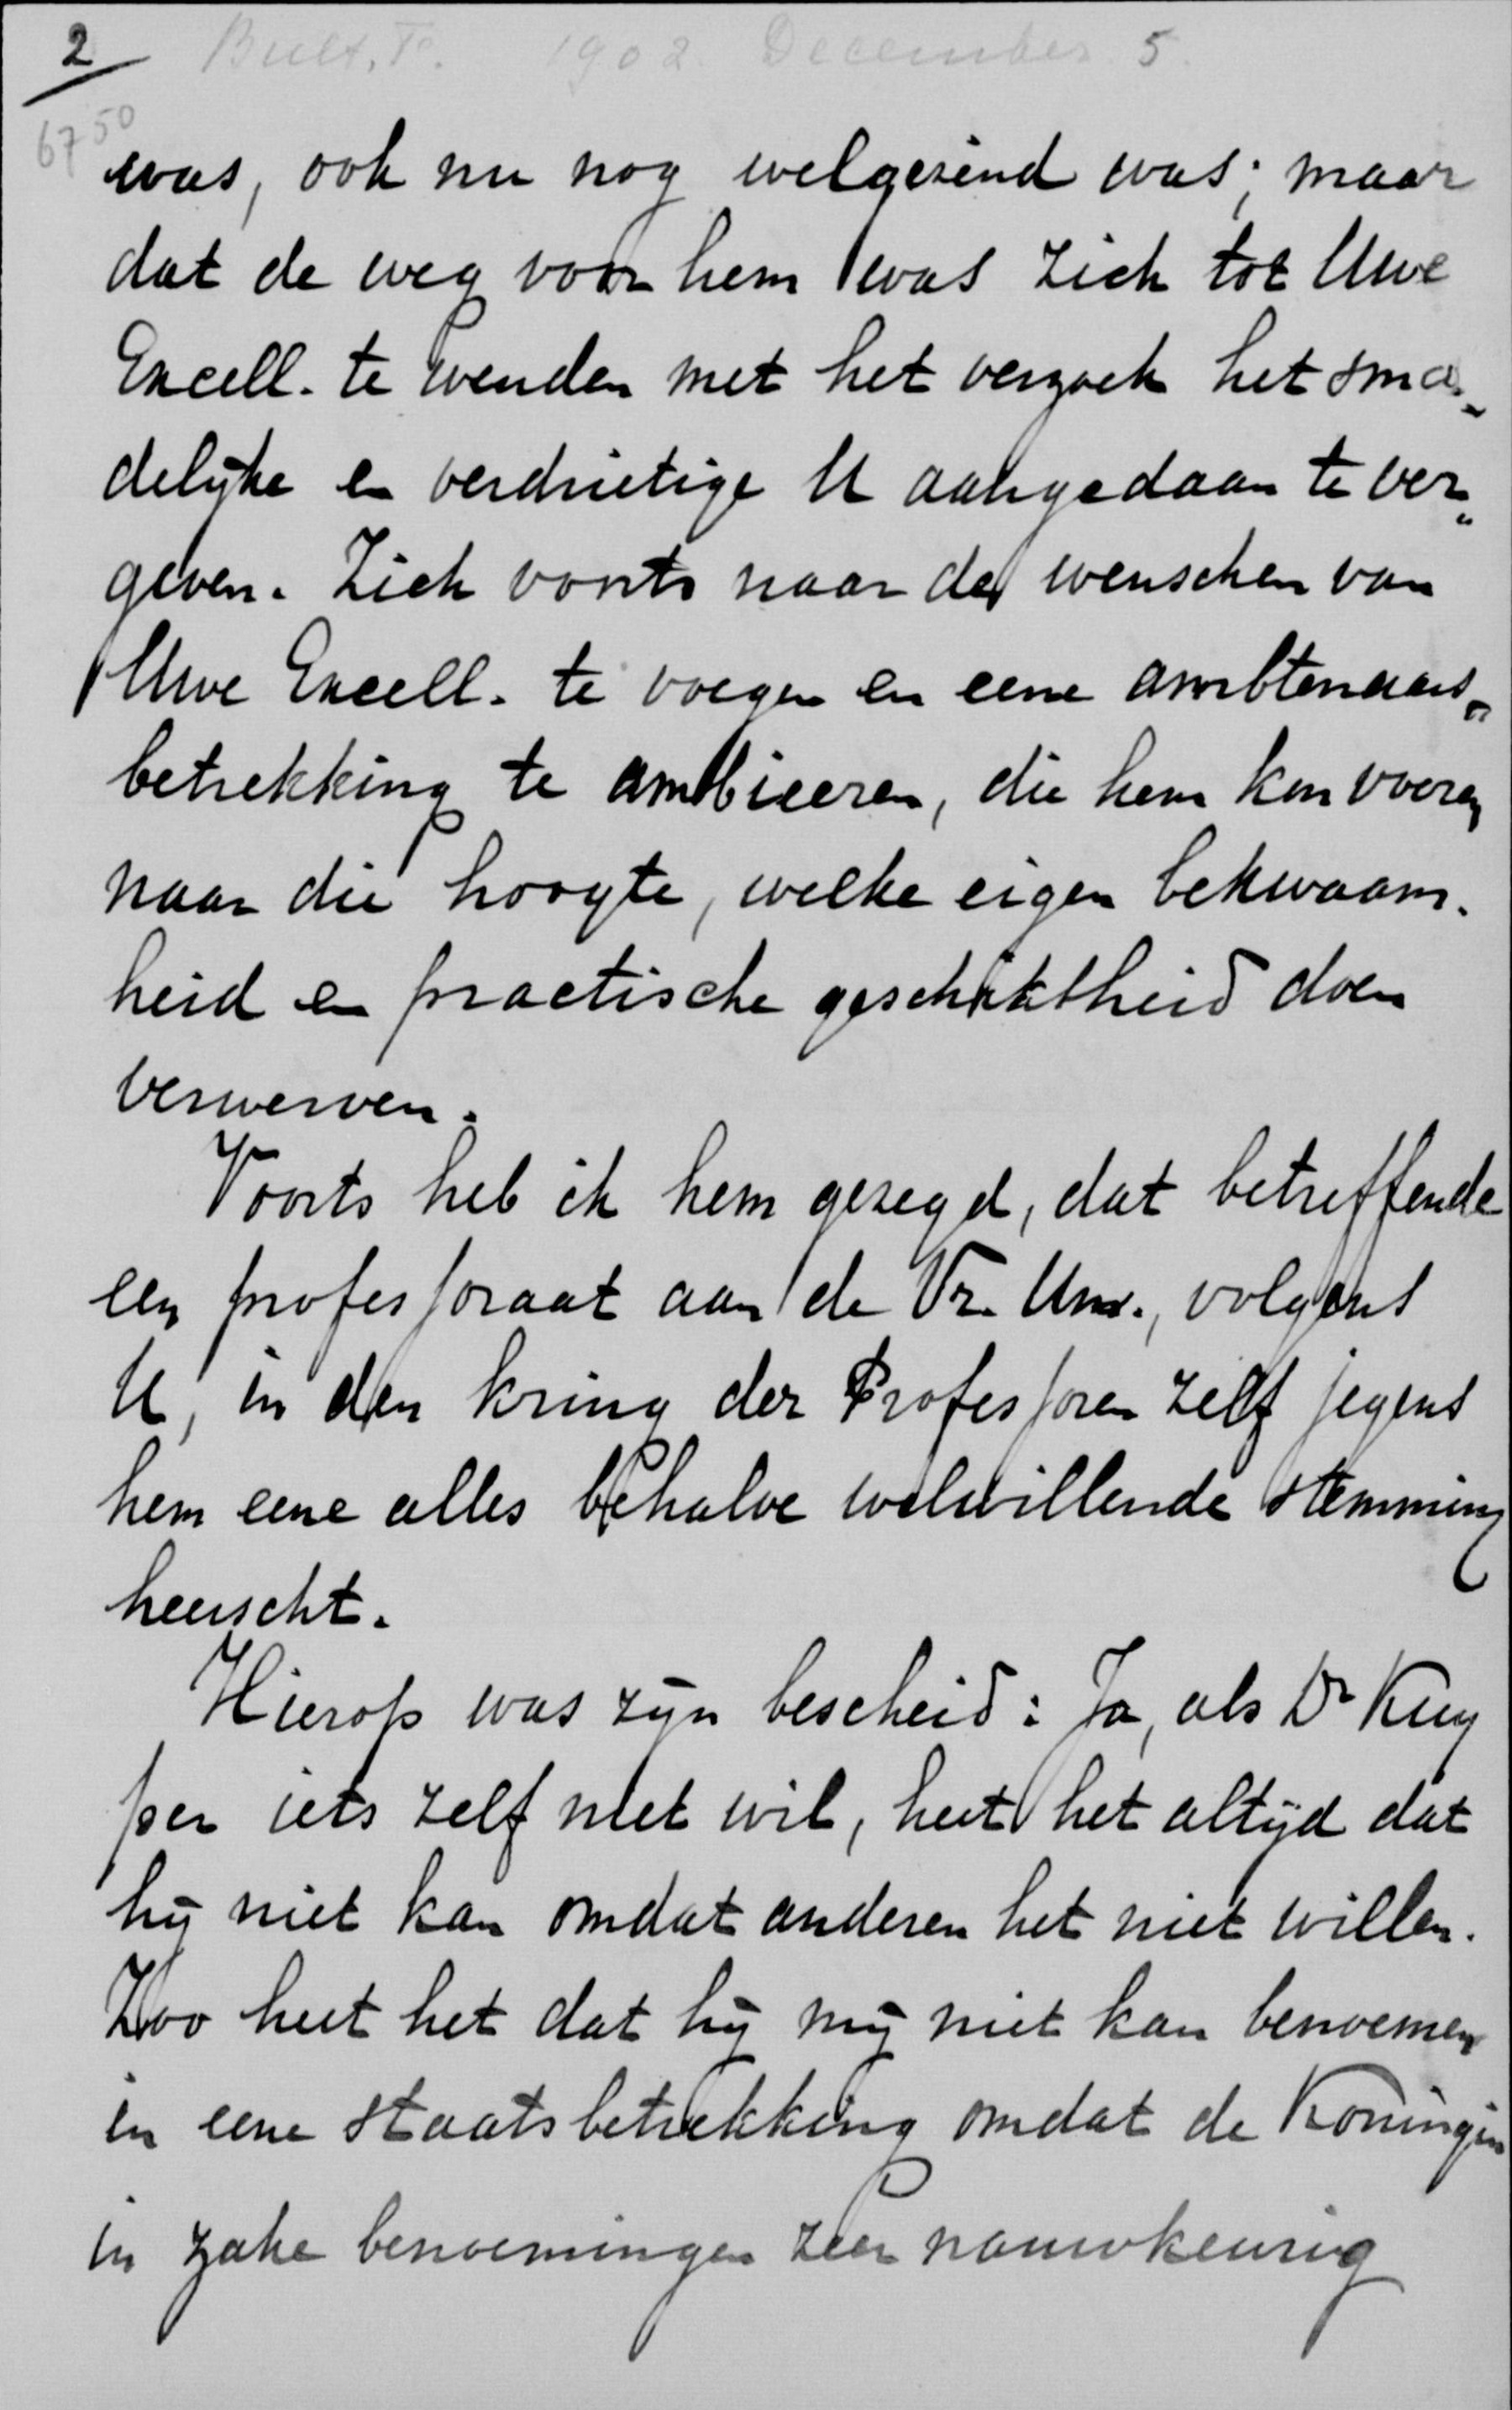 2 Bult, T. 1902 December 5.
6750
was, ook nu nog welgezind was; maar
dat de weg voor hem was zich tot Uwe
Excell. te wenden met het verzoek het sma„
delijke en verdrietige U aangedaan te ver„
geven. Zich voorts naar de wenschen van
Uwe Excell. te voegen en eene ambtenaars„
betrekking te ambieeren, die hem kan voeren
naar die hoogte, welke eigen bekwaam-
heid en practische geschiktheid doen
verwerven.
Voorts heb ik hem gezegd, dat betreffende
een professoraat aan de Vr. Univ., volgens
U, in den kring der Professoren zelf jegens
hem eene alles behalve welwillende stemming
heerscht.
Hierop was zijn bescheid: Ja, als Dr Kuy
per iets zelf niet wil, heet het altijd dat
hij niet kan omdat anderen het niet willen.
Zoo heet het dat hij mij niet kan benoemen
in eene staatsbetrekking omdat de Koningin
in zake benoemingen zeer nauwkeurig